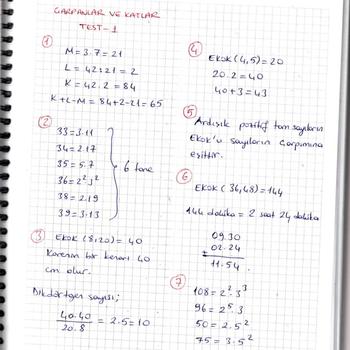 ÇARPANLAR VE KATLAR
TEST-1
①
M=3.7=21
L=42:21=2
K=42.2=84
K+L-M=84+2-21=65
②
33=3.11
34=2.17
35=5.7
36=2².3²
38=2.19
39=3.13
6 tane
③ EKOK(8,20)=40
Karenin bir kenarı 40
cm olur.
Dikdörtgen sayısı;
40.40/20.8 = 2.5=10
④
EKOK(4,5)=20
20.2=40
40+3=43
⑤
Ardışık pozitif tam sayıların
EKOK'u sayıların çarpımına
eşittir.
⑥
EKOK(36,48)=144
144 dakika = 2 saat 24 dakika
09.30
02.24
+
11.54
⑦
108=2².3³
96=2⁵.3
50=2.5²
75=3.5²